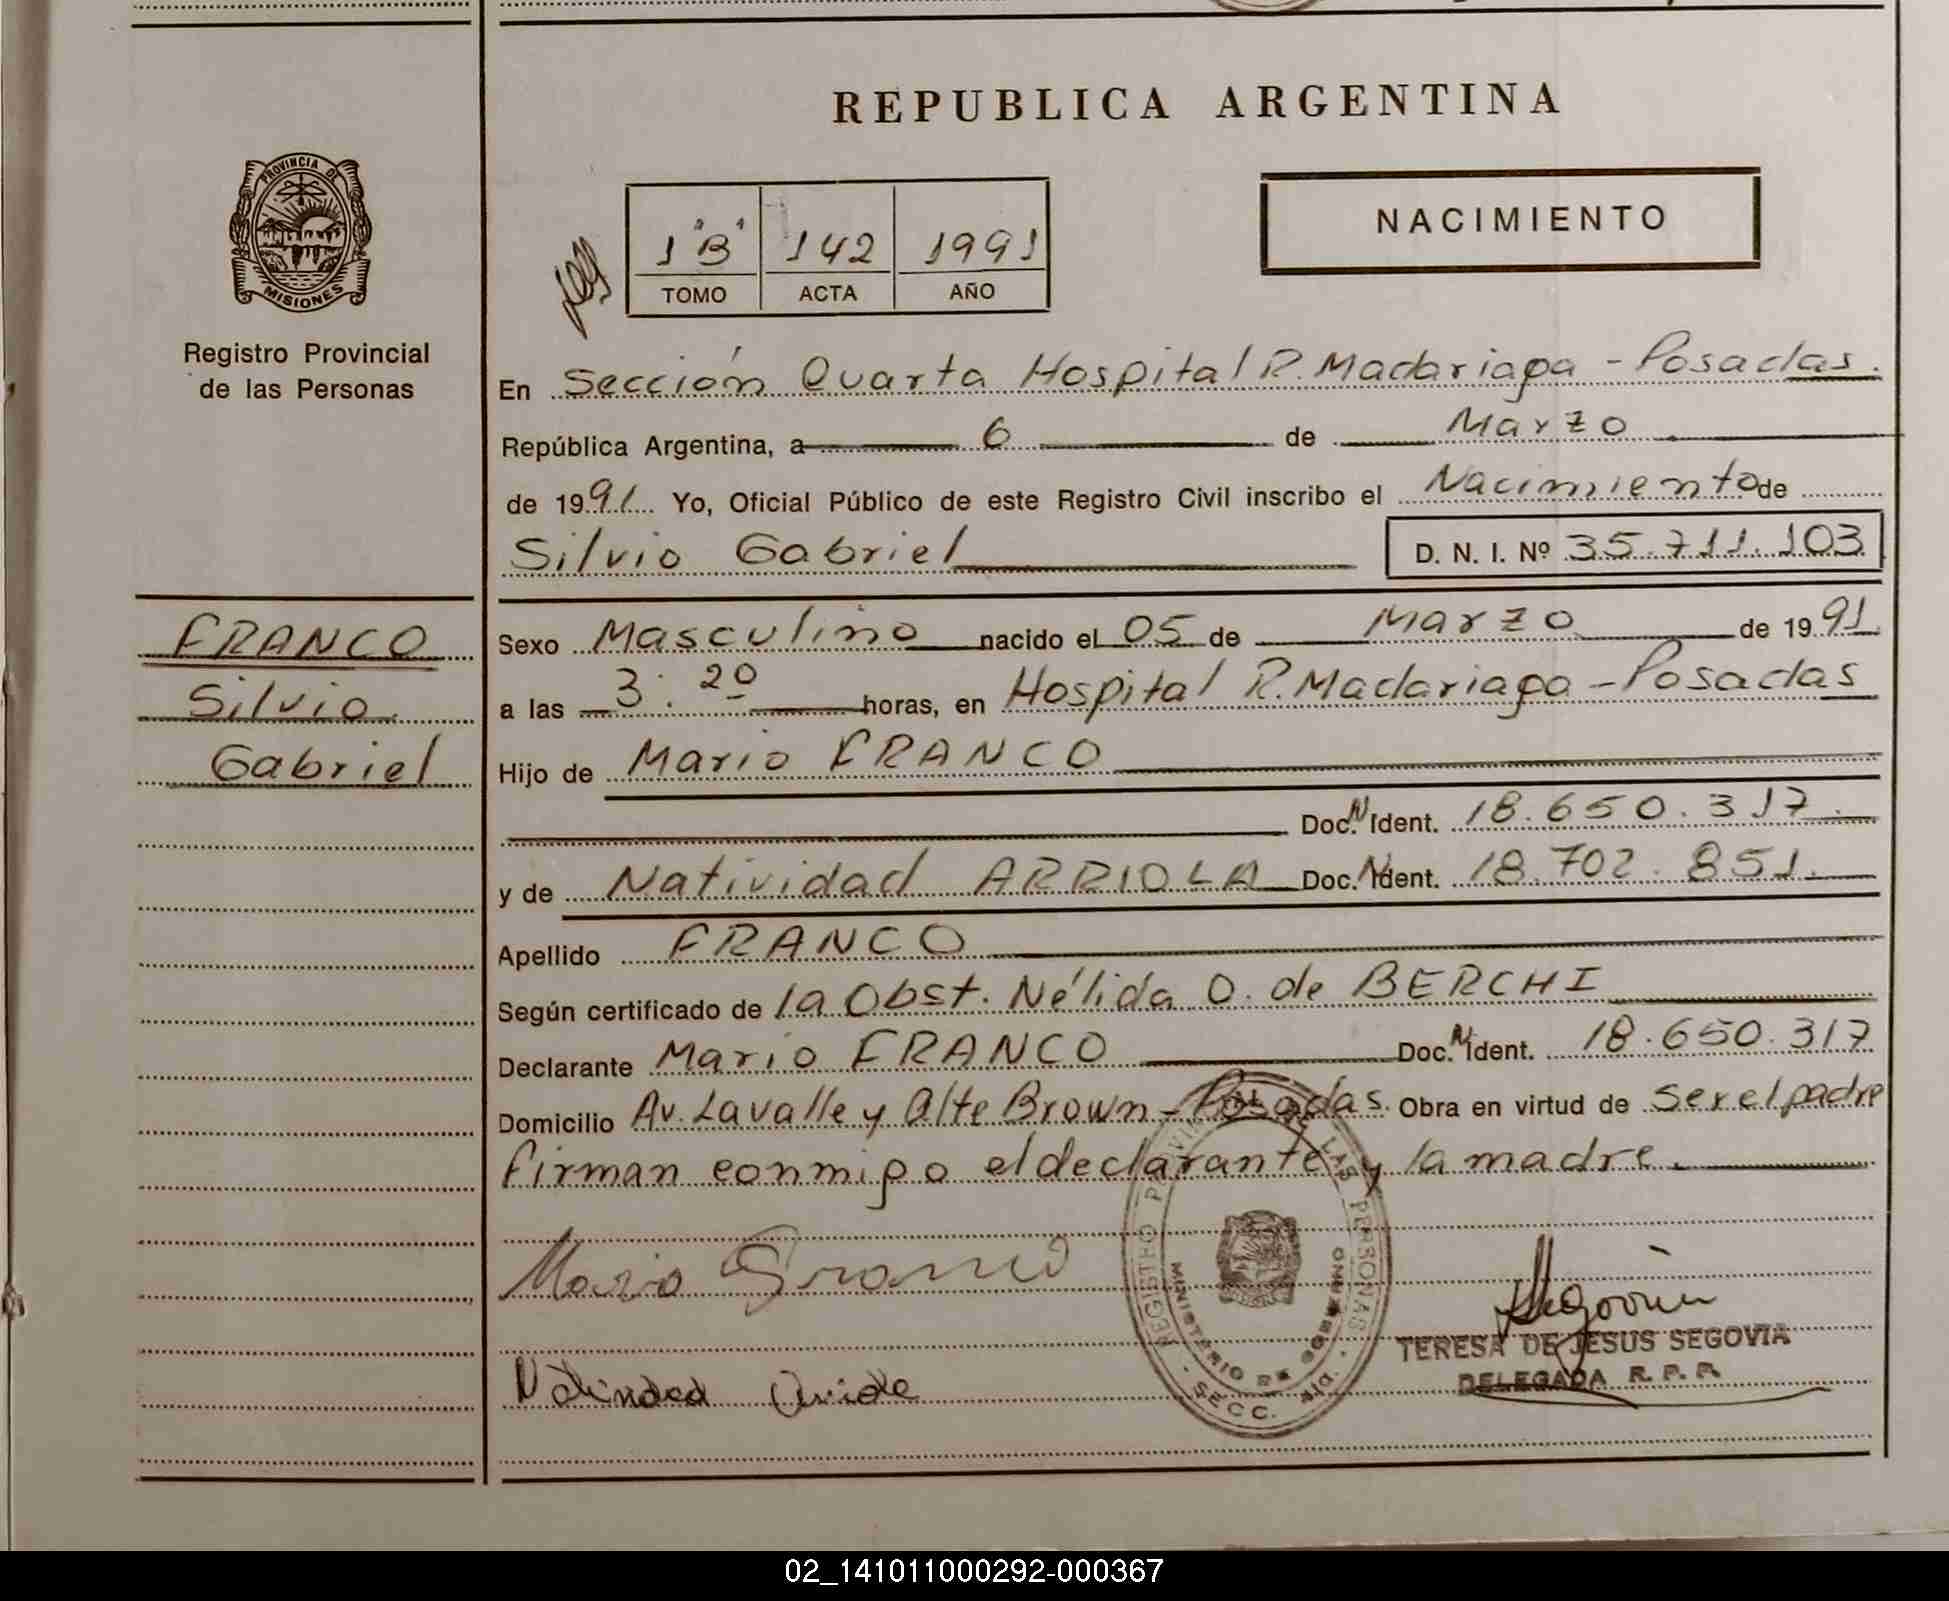 REPUBLICA ARGENTINA
PROVINCIA DE
MISIONES
Registro Provincial
de las Personas
1 "B" 142 1991
TOMO ACTA AÑO
NACIMIENTO
En Sección Quarta Hospital R. Madariaga - Posadas.
República Argentina, a 6 de Marzo
de 1991 Yo, Oficial Público de este Registro Civil inscribo el Nacimiento de
Silvio Gabriel D. N. I. Nº 35.711.103
FRANCO
Silvio
Gabriel
Sexo Masculino nacido el 05 de Marzo de 1991
a las 3:20 horas, en Hospital R. Madariaga - Posadas
Hijo de Mario FRANCO
Doc. N Ident. 18.650.317.
y de Natividad ARRIOLA Doc. N Ident. 18.702.851.
Apellido FRANCO
Según certificado de la Obst. Nélida O. de BERCHI
Declarante Mario FRANCO Doc. N Ident. 18.650.317
Domicilio Av. Lavalle y Alte Brown - Posadas. Obra en virtud de ser el padre
firman conmigo el declarante y la madre.
REGISTRO PROVINCIAL DE LAS PERSONAS
MINISTERIO DE GOBIERNO
SECC. 4ta.
Mario Franco
Segovia
TERESA DE JESUS SEGOVIA
DELEGADA R. P. P.
02_141011000292-000367